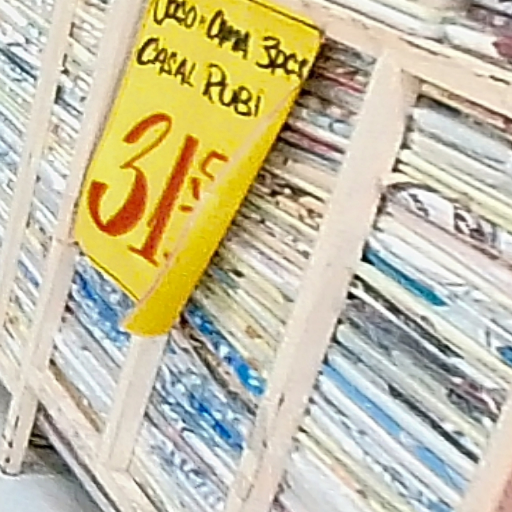 JOGO·CAMA 3PCS
CASAL RUBI
31